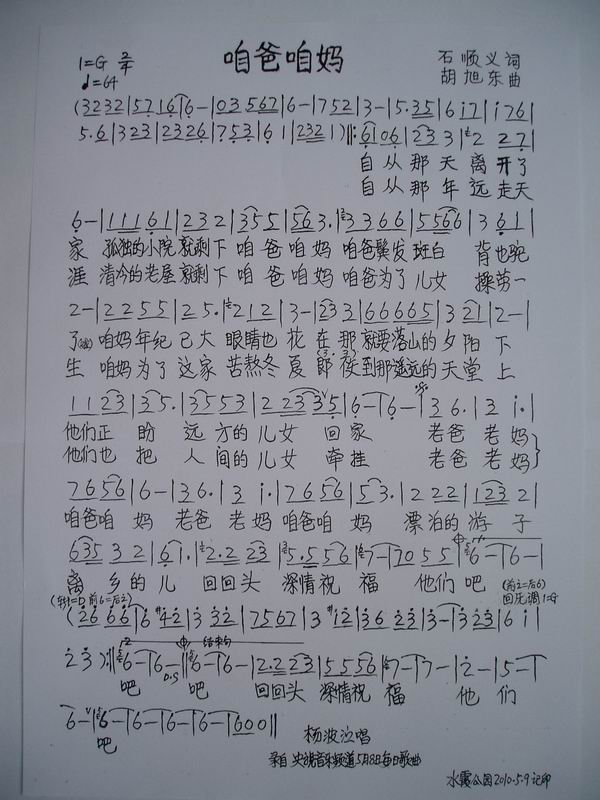 咱爸咱妈
1=G 2/4
♩=64
石顺义词
胡旭东曲
(3232|5716|6-|03567|6-|752|3-|5.35|6i7|i76|
5.6|323|2326|753|61|2321):‖:6106|233|227|
自从那天离开了
自从那年远走天
6-|11161|232|355|563.|3366|5566|361|
家 孤独的小院就剩下咱爸咱妈 咱爸鬓发斑白 背也驼
涯 清冷的老屋就剩下咱爸咱妈 咱爸为了儿女 操劳一
2-|2255|25.|212|3-|233|66665|321|2-|
了 咱妈年纪已大 眼睛也花 在那就要落山的夕阳下
生 咱妈为了这家 苦熬冬夏 即使到那遥远的天堂上
1123|35.|3553|22335|6-|6-|36.|3i.|
他们正盼远方的儿女回家 老爸老妈
他们也把人间的儿女牵挂 老爸老妈
7656|6-|36.|3i.|7656|53.|222|1232|
咱爸咱妈 老爸老妈咱爸咱妈 漂泊的游子
63532|61.|2.223|5.556|7-|7055|6-|6-|
离乡的儿 回回头 深情祝福 他们吧
(转1=D 前6=后2)
(前2=后6)
回原调1=G
(2666|6#42|3332|7567|3#12|3623|3-|323|6i|
23):‖6-|6-‖6-|6-|2.223|5556|7-|7-|2-|5-|
结束句
吧 吧 回回头 深情祝福 他们
6-|6-|6-|6-|6-|600‖
吧
杨波泣唱
录自央视音乐频道5月8日每日歌曲
水霞公园2010.5.9记印